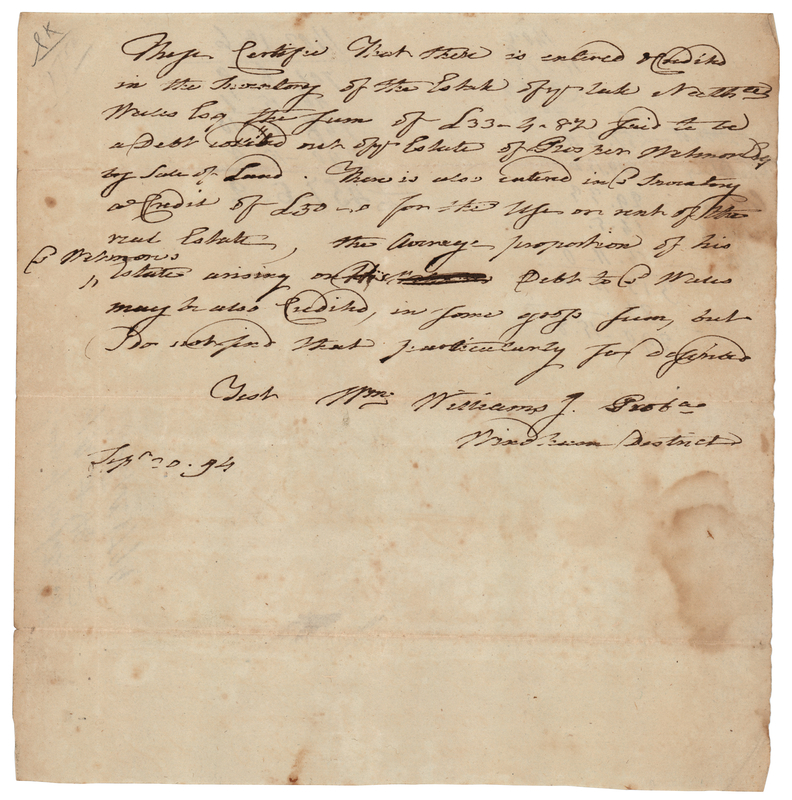 These Certifie That there is entered & Credited
in the Inventory of the Estate of ye late Nath.
Wales Esq the sum of £33-4-8½ said to be
a Debt out of ye Estate of Prosper Wetmore Esq
by Sale of Land. There is also entered in sd Inventory
a Credit of £30-0 for the Use or rent of the
real Estate, the Average proportion of his
sd Wetmores
" Estate arising on this Debt to sd Wales
may be also Credited, in some gross sum, but
I do not find that particularly so Defined
Test Wm Williams J. Proba
Windham District
Sepr 20. 94